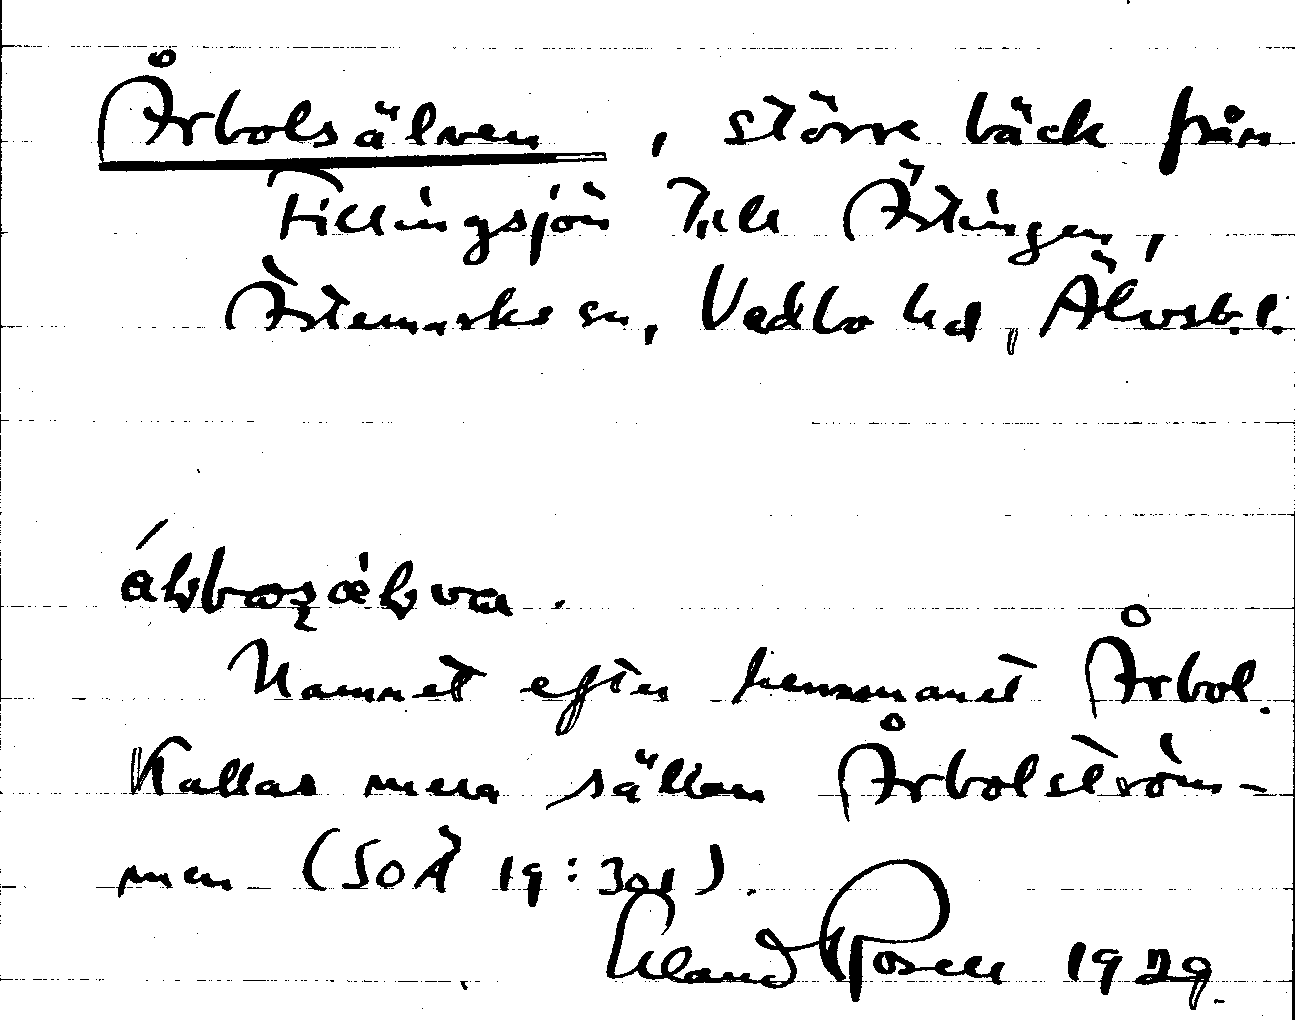 Årbolsälven, större bäck från
Tillingsjön till Ästingen,
Ärtemarks sn, Vedbo hd, Älvsb. l.
Namnet efter hemmanet Årbol.
Kallas mera sällan Årbolström-
men (SOÄ 19:301).
Eland Rosell 1929.